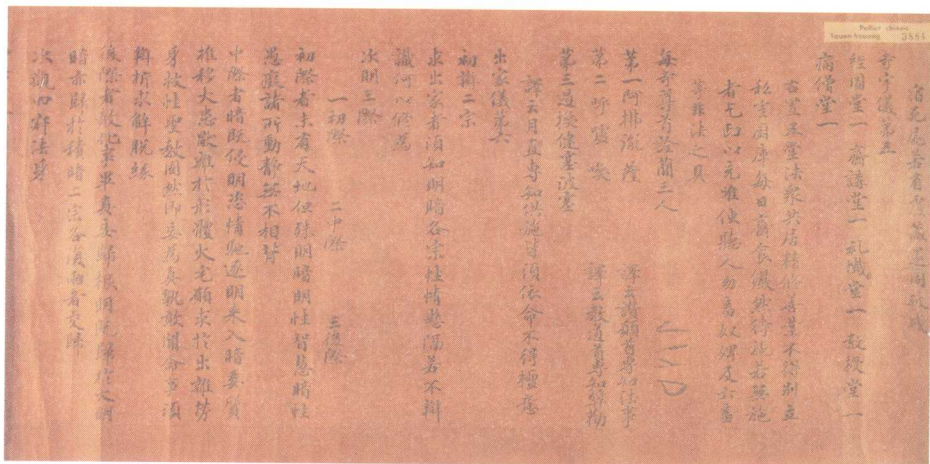 Pelliot chinois
Touen-houang 3884
宿死尼若有覆藏還同破戒
寺宇儀第五
經圖堂一 齋講堂一 礼懺堂一 教授堂一
病僧堂一
右置五堂法衆共居精修善業不得別立
私室廚庫每日齋食儼然待施若無施
者乞丐以充唯使聽人勿畜奴婢及六畜
等非法之具
每寺尊首詮簡三人
第一阿拂胤薩 譯云讚願首專知法事
第二呼嚧喚 譯云教道首專知獎勸
第三遏換健塞波塞
譯云月直專知供施皆須依命不得擅意
出家儀第六
初辯二宗
求出家者須知明暗各宗性情懸隔若不辯
識何以修為
次明三際
一初際 二中際 三後際
初際者未有天地但殊明暗明性智慧暗性
愚癡諸所動靜無不相背
中際者暗既侵明恣情馳逐明來入暗委質
推移大患猒離於形體火宅願求於出離勞
身救性聖教固然即妄為真孰敢聞命事須
辯折求解脫緣
後際者教化事畢真妄歸根明既歸於大明
暗亦歸於積暗二宗各復兩者交歸
次觀四寂法身